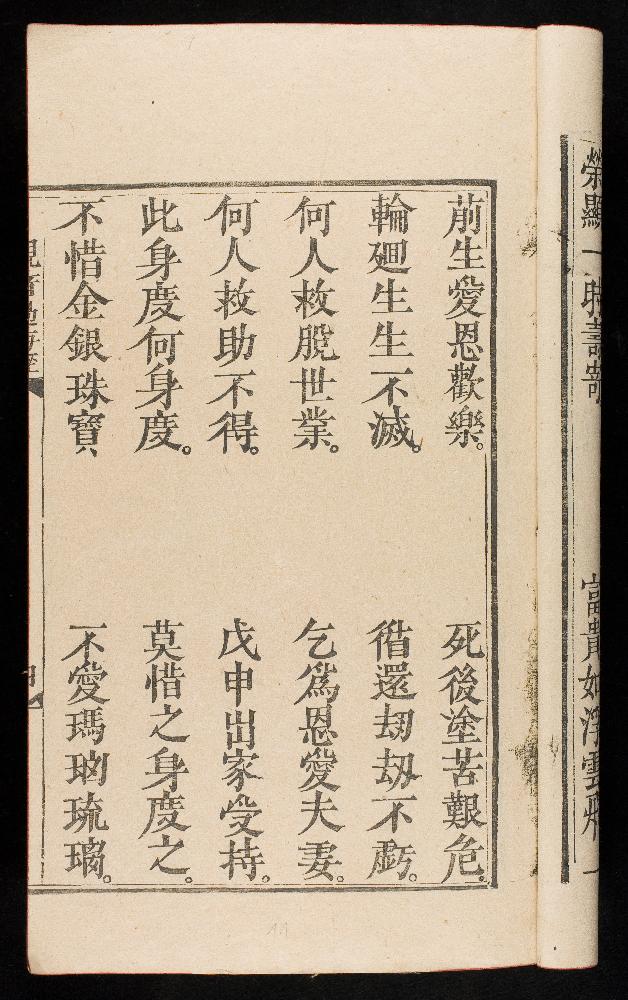 榮顯一時壽寄 富貴如浮雲灼
前生愛恩歡樂。 死後塗苦艱危。
輪廻生生不滅。 循還刼刼不虧。
何人救脫世業。 乞爲恩愛夫妻。
何人救助不得。 戊申出家受持。
此身度何身度。 莫惜之身度之。
不惜金銀珠寶、 不愛瑪瑙琉璃。